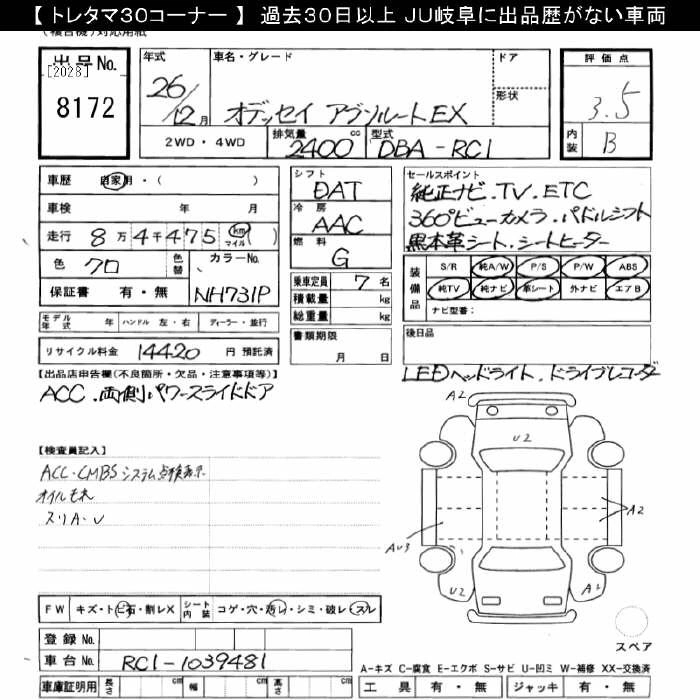 【 トレタマ30コーナー 】 過去30日以上 JU岐阜に出品歴がない車両
出品No.
[2028]
8172
年式
26/12月
車名・グレード
オデッセイ アブソルートEX
ドア
形状
評価点
3.5
内装
B
2WD・4WD
排気量
2400 cc
型式
DBA-RC1
車歴 自家用・( )
車検 年 月
走行 8万4千475 km マイル ( )
色 クロ 色替
カラーNo.
NH731P
保証書 有・無
シフト
DAT
冷房
AAC
燃料
G
乗車定員 7名
積載量 kg
総重量 kg
セールスポイント
純正ナビ.TV.ETC
360°ビューカメラ.パドルシフト
黒本革シート.シートヒーター
装備品
S/R 純A/W P/S P/W ABS
純TV 純ナビ 革シート 外ナビ エアB
ナビ型番:
モデル年式 年 ハンドル 左・右 ディーラー・並行
リサイクル料金 14420 円 預託済
書類期限
月 日
後日品
LEDヘッドライト.ドライブレコーダ
【出品店申告欄(不良箇所・欠品・注意事項等)】
ACC.両側パワースライドドア
【検査員記入】
ACC.CMBS システム点検表示
オイルモレ
スリA.U
A2
U2
A2
AU3
U2
A2
FW キズ・トビ石・割レX
シート内装 コゲ・穴・汚レ・シミ・破レ・スレ
登録No.
車台No. RC1-1039481
車庫証明用 長さ cm 幅 cm 高さ cm
スペア
A-キズ C-腐食 E-エクボ S-サビ U-凹ミ W-補修 XX-交換済
工具 有・無 ジャッキ 有・無